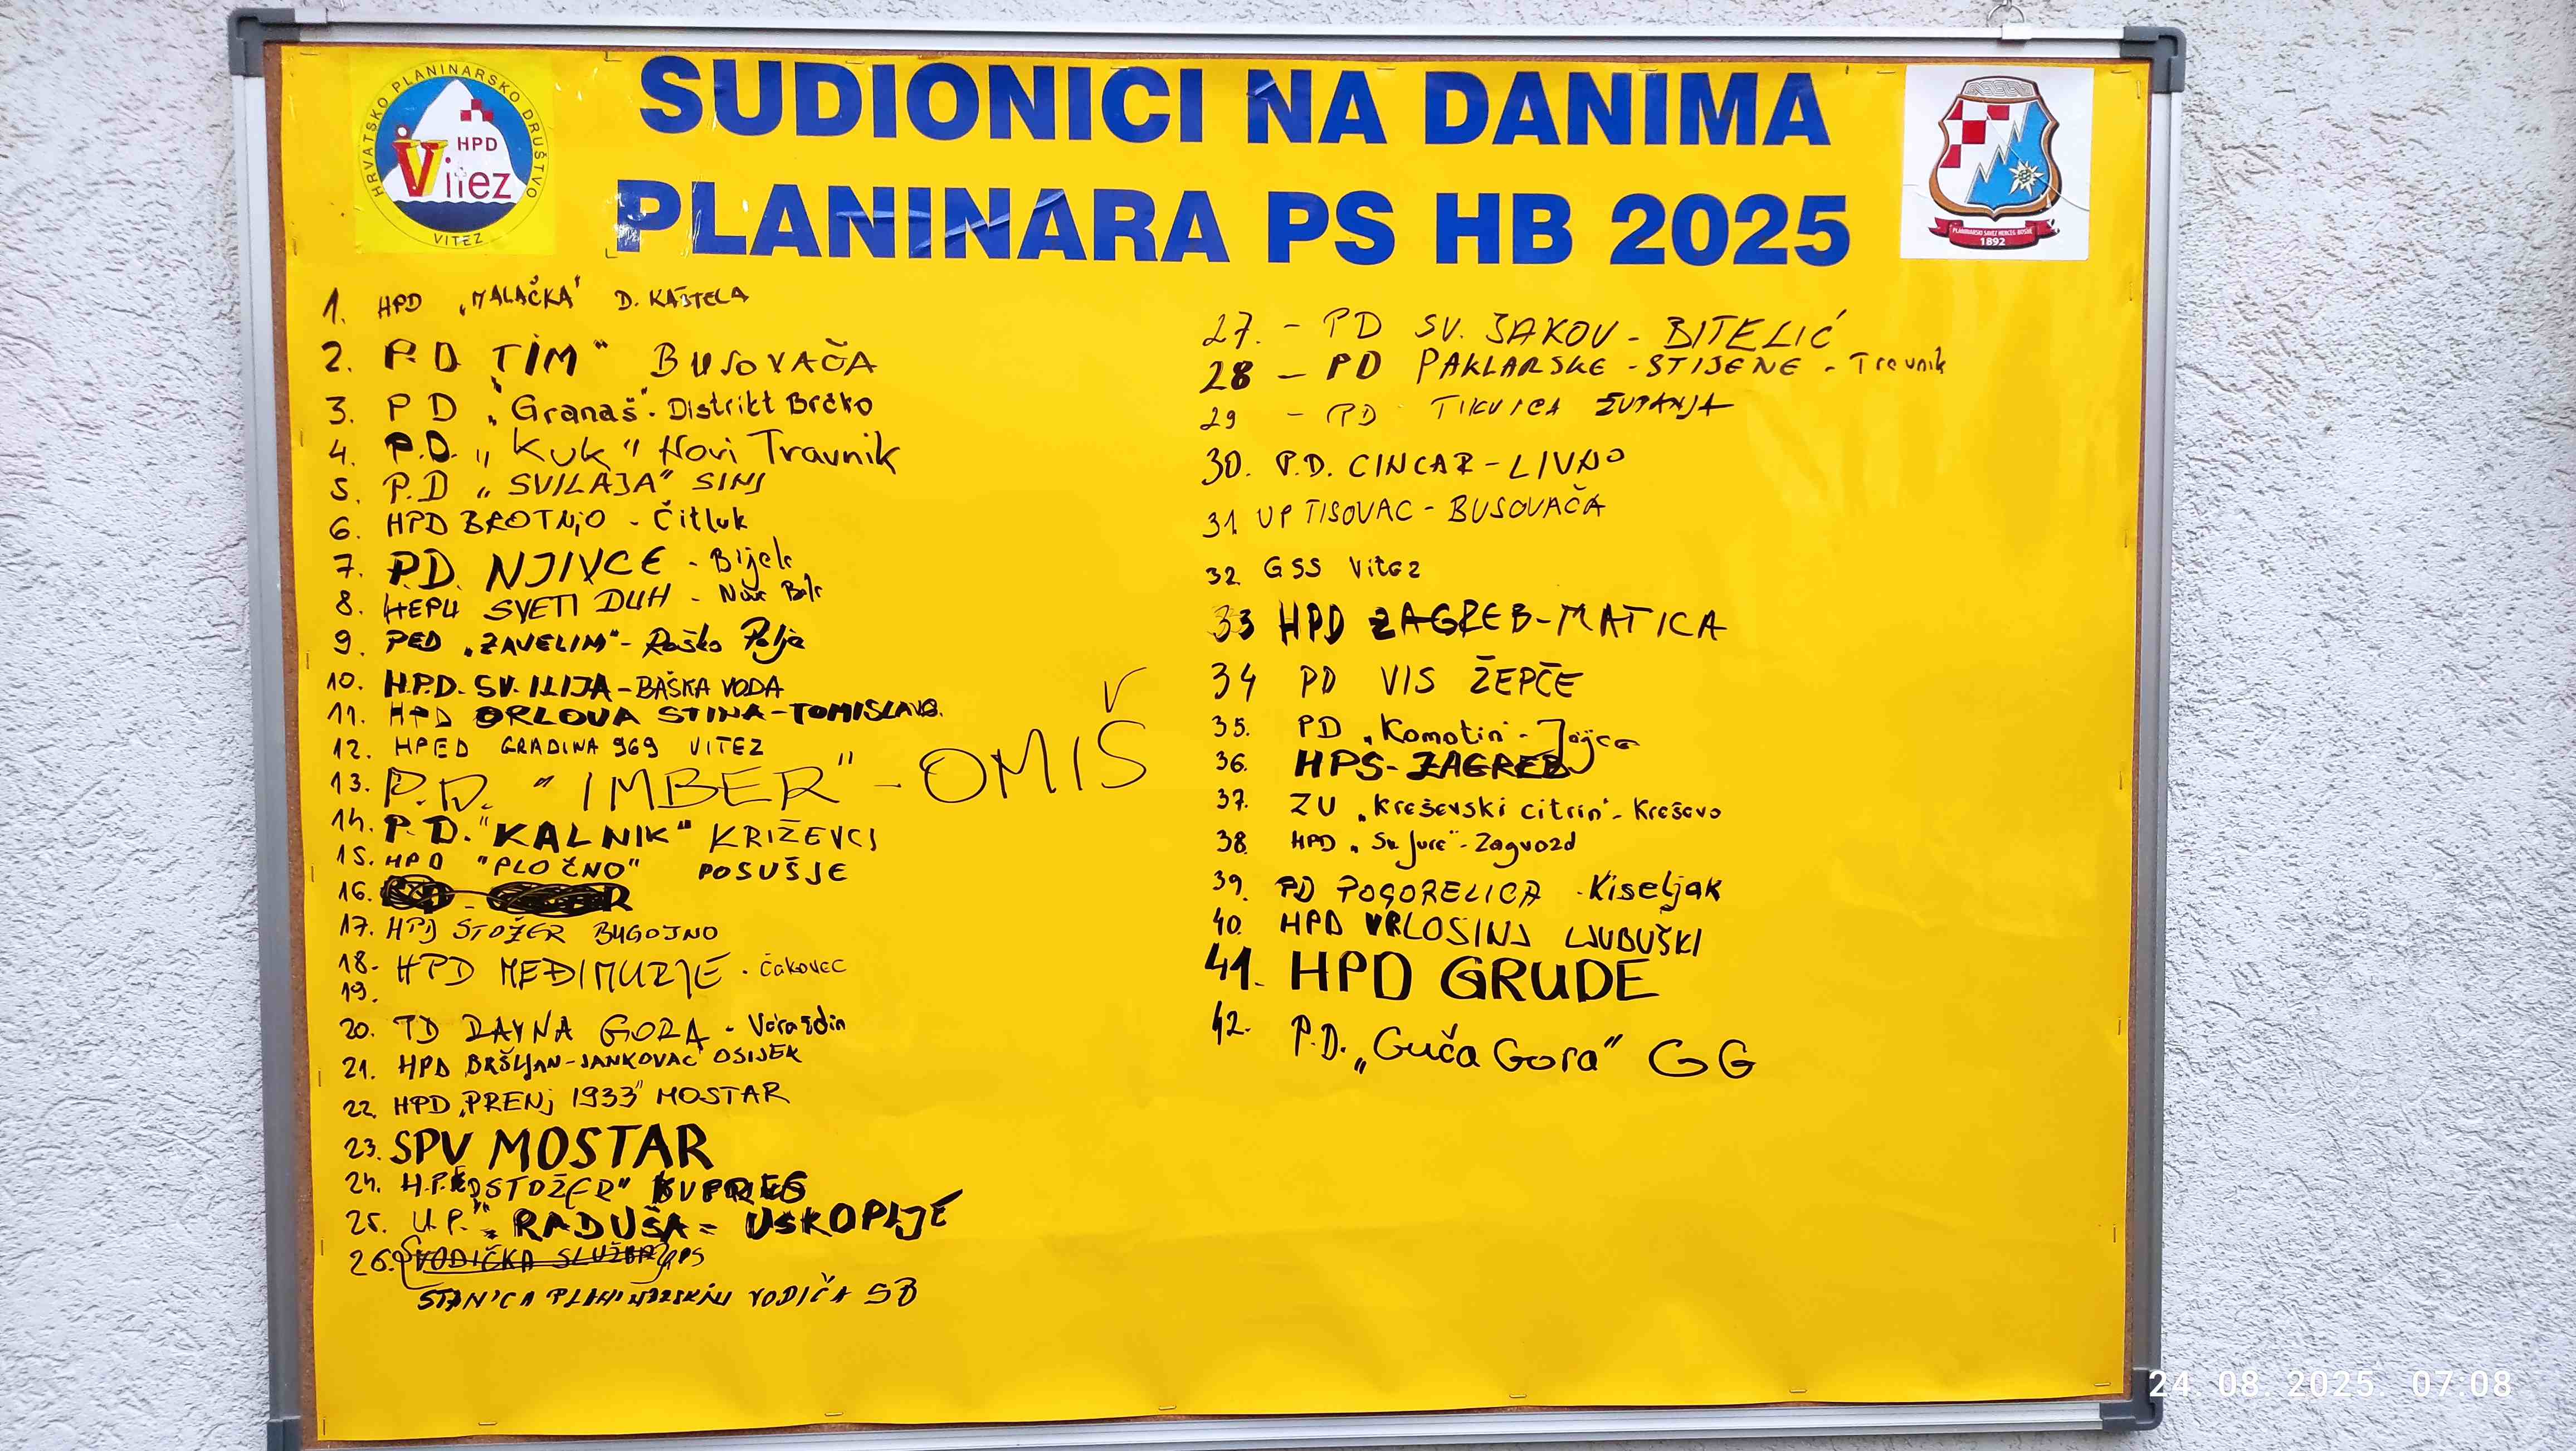 SUDIONICI NA DANIMA
PLANINARA PS HB 2025
HRVATSKO PLANINARSKO DRUŠTVO
HPD
Vitez
VITEZ
PLANINARSKI SAVEZ HERCEG BOSNE
1892
1. HPD „MALAČKA" D. KAŠTELA
2. P.D „TIM" BUSOVAČA
3. PD „Granaš". Distrikt Brčko
4. P.D. „Kuk" Novi Travnik
5. P.D „SVILAJA" SINJ
6. HPD BROTNjO - Čitluk
7. PD. NJIVCE - Bijela
8. HEPU SVETI DUH - Nova Bila
9. PED „ZAVELIM"- Roško Polje
10. H.P.D. SV. ILIJA - BAŠKA VODA
11. HPD ORLOVA STINA-TOMISLAVG.
12. HPED GRADINA 969 VITEZ
13. P.D. "IMBER" - OMIŠ
14. P.D. "KALNIK" KRIŽEVCI
15. HPD "PLOČNO" POSUŠJE
16.
17. HPD STOŽER BUGOJNO
18. HPD MEĐIMURJE - Čakovec
19.
20. TD RAVNA GORA - Varaždin
21. HPD BRŠLJAN-JANKOVAC OSIJEK
22. HPD „PRENj 1933" MOSTAR
23. SPV MOSTAR
24. H.P.E.D „STOŽER" KUPRES
25. U.P. „RADUŠA = USKOPLJE
26. VODIČKA SLUŽBA
STANICA PLANINARSKIH VODIČA SB
27. - PD SV. JAKOV - BITELIĆ
28 - PD PAKLARSKE - STIJENE - Travnik
29 - PD TIKVICA ŽUPANJA
30. P.D. CINCAR - LIVNO
31. UP TISOVAC - BUSOVAČA
32. GSS Vitez
33 HPD ZAGREB-MATICA
34 PD VIS ŽEPČE
35. PD „Komotin" - Jajce
36. HPS-ZAGREB
37. ZU „Kreševski citrin" - Kreševo
38. HPD „Sv Jure" - Zagvozd
39. PD POGORELICA - Kiseljak
40. HPD VRLOSINJ LJUBUŠKI
41. HPD GRUDE
42. P.D. „Guča Gora" GG
24.08.2025 07:08